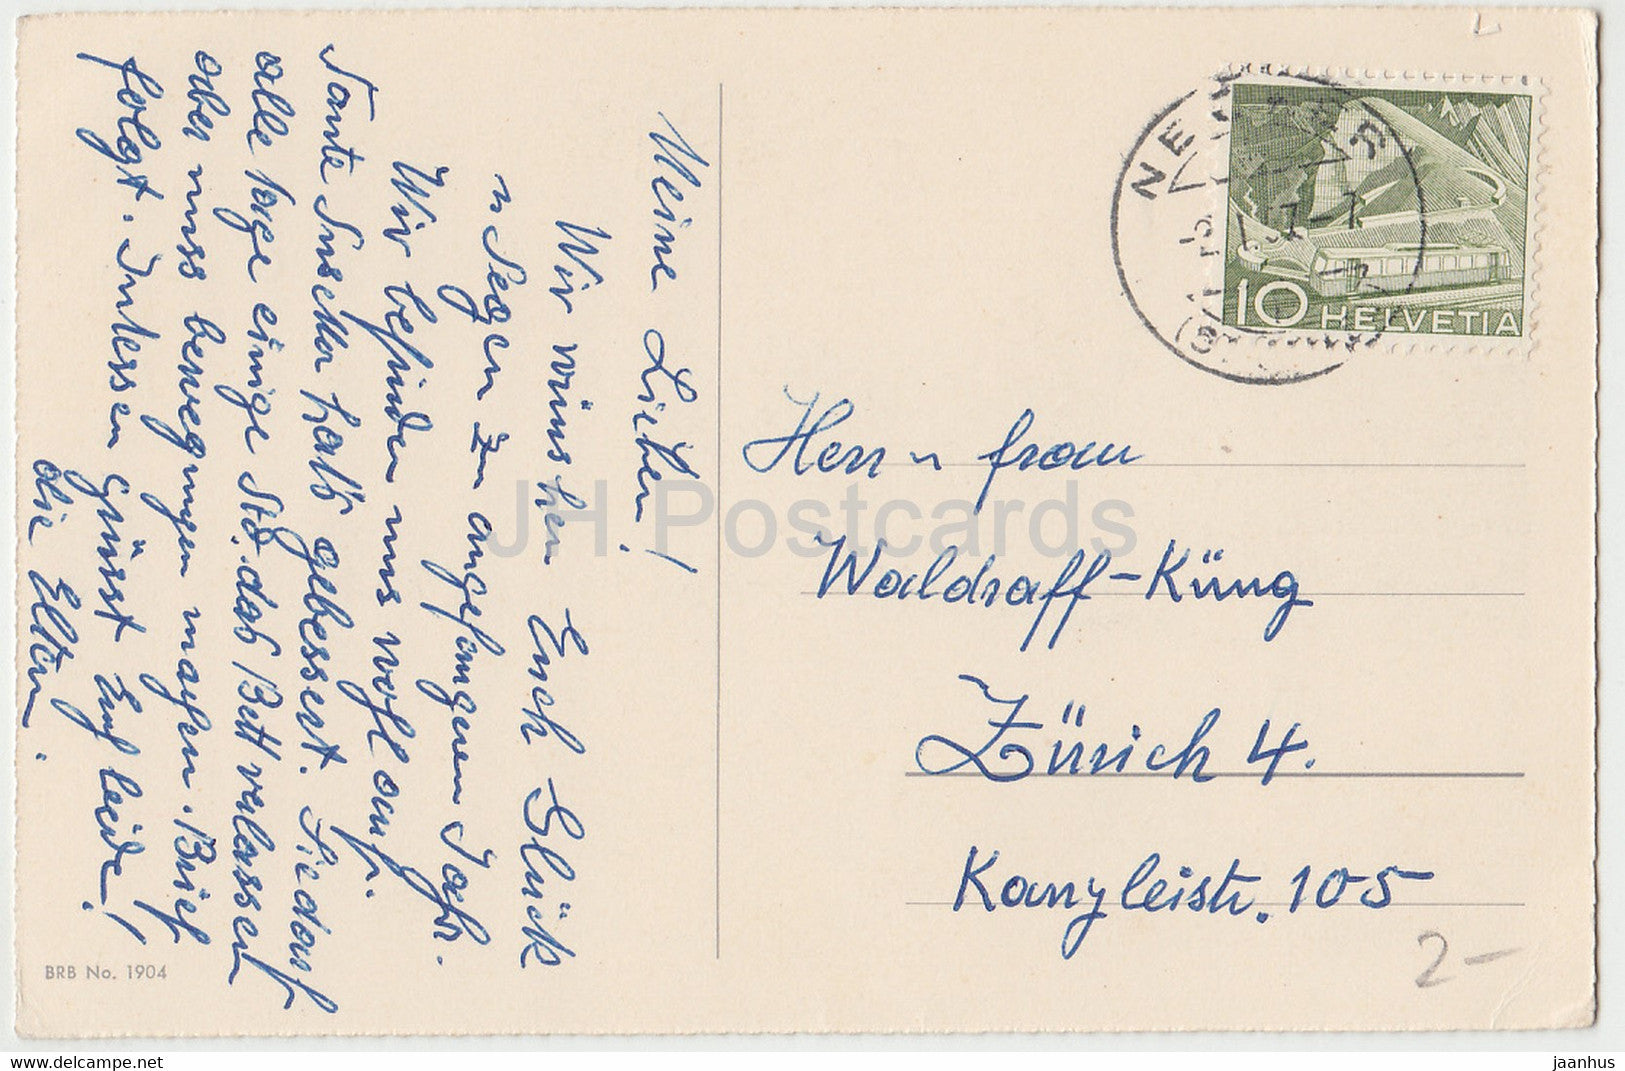 Meine Lieben!
Wir wünschen Euch Glück
u Segen zu angefangenen Jahr.
Wir befinden uns wohl auf.
Tante Insetta hats gebessert. Sie darf
alle tage einige Std. das Bett verlassen
aber muss bewegungen machen. Brief
folgt. Intessen Grüsst Euch beide!
die Eltern.
BRB No. 1904
10 HELVETIA
Herr u frau
Waldraff-Küng
Zürich 4.
Kanzleistr. 105
2-
JH Postcards
www.delcampe.net
jaanhus